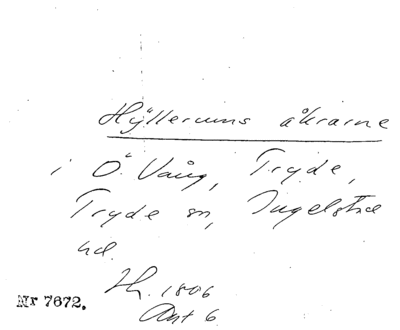 Hyllerums åkrarne
i Ö. Vång, Tryde,
Tryde sn, Ingelstad
hd.
Sk. 1806
Akt 6
Nr 7672.